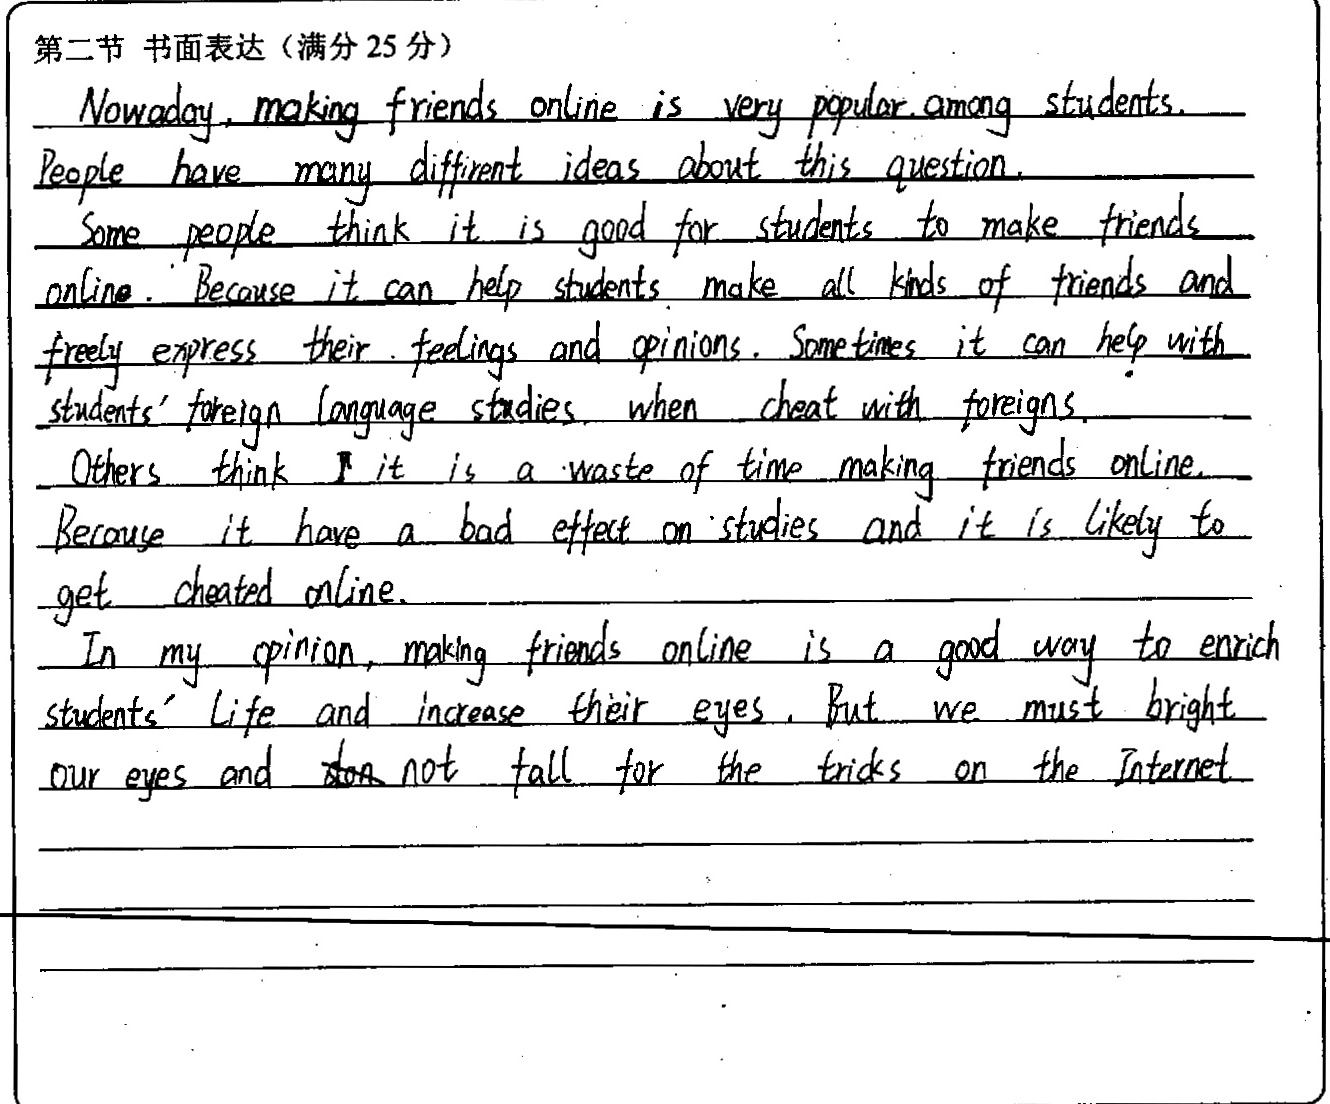 第二节 书面表达（满分 25 分）
Nowaday, making friends online is very popular among students.
People have many diffirent ideas about this question.
Some people think it is good for students to make friends
online. Because it can help students make all kinds of friends and
freely express their feelings and opinions. Sometimes it can help with
students' foreign language studies when cheat with foreigns.
Others think it is a waste of time making friends online.
Because it have a bad effect on studies and it is likely to
get cheated online.
In my opinion, making friends online is a good way to enrich
students' life and increase their eyes. But we must bright
our eyes and not fall for the tricks on the Internet